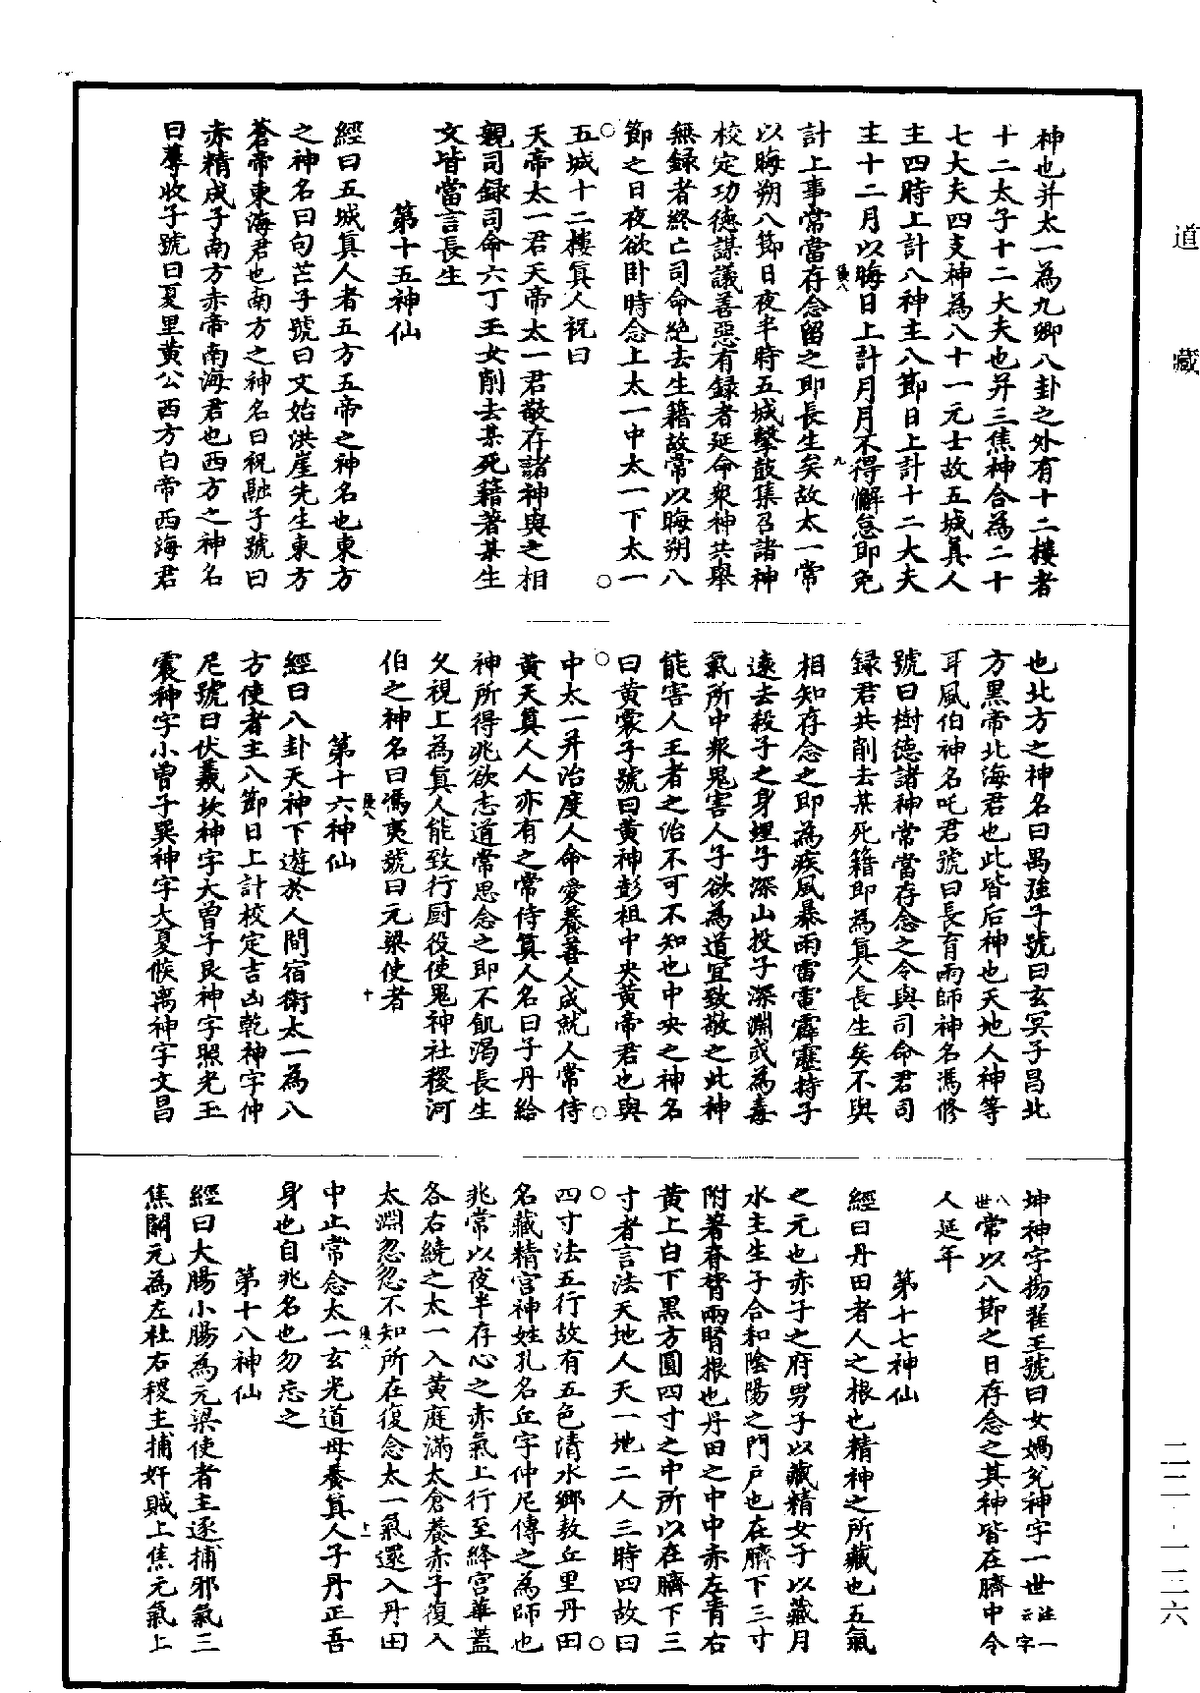 道藏
神也并太一為九卿八卦之外有十二樓者
十二太子十二大夫也并三焦神合為二十
七大夫四支神為八十一元士故五城真人
主四時上計八神主八節日上計十二大夫
主十二月以晦日上計月月不得懈怠即免
計上事常當存念留之即長生矣故太一常
以晦朔八節日夜半時五城擊鼓集召諸神
校定功德謀議善惡有録者延命衆神共舉
無録者終亡司命絶去生籍故常以晦朔八
節之日夜欲卧時念上太一中太一下太一
五城十二樓真人祝曰
天帝太一君天帝太一君敬存諸神與之相
親司録司命六丁玉女削去某死籍著某生
文皆當言長生
第十五神仙
經曰五城真人者五方五帝之神名也東方
之神名曰句芒子號曰文始洪崖先生東方
蒼帝東海君也南方之神名曰祝融子號曰
赤精成子南方赤帝南海君也西方之神名
曰蓐收子號曰夏里黄公西方白帝西海君
也北方之神名曰禺強子號曰玄冥子昌北
方黑帝北海君也此皆后神也天地人神等
耳風伯神名吒君號曰長育雨師神名馮修
號曰樹德諸神常當存念之令與司命君司
録君共削去某死籍即為真人長生矣不與
相知存念之即為疾風暴雨雷電霹靂持子
遠去殺子之身埋子深山投子深淵或為毒
氣所中衆鬼害人子欲為道宜致敬之此神
能害人王者之治不可不知也中央之神名
曰黄裳子號曰黄神彭祖中央黄帝君也與
中太一并治度人命愛養善人成就人常侍
黄天真人人亦有之常侍真人名曰子丹給
神所得兆欲志道常思念之即不飢渴長生
久視上為真人能致行厨役使鬼神社稷河
伯之神名曰馮夷號曰元梁使者
第十六神仙
經曰八卦天神下遊於人間宿衛太一為八
方使者主八節日上計校定吉凶乾神字仲
尼號曰伏羲坎神字大曾子艮神字照光玉
震神字小曾子巽神字大夏候离神字文昌
坤神字揚翟王號曰女媧兊神字一世注一云字
八世常以八節之日存念之其神皆在臍中令
人延年
第十七神仙
經曰丹田者人之根也精神之所藏也五氣
之元也赤子之府男子以藏精女子以藏月
水主生子合和陰陽之門戸也在臍下三寸
附著脊膂兩腎根也丹田之中中赤左青右
黄上白下黑方圓四寸之中所以在臍下三
寸者言法天地人天一地二人三時四故曰
四寸法五行故有五色清水鄉敖丘里丹田
名藏精宫神姓孔名丘字仲尼傳之為師也
兆常以夜半存心之赤氣上行至絳宫華蓋
各右繞之太一入黄庭滿太倉養赤子復入
太淵忽忽不知所在復念太一氣還入丹田
中止常念太一玄光道母養真人子丹正吾
身也自兆名也勿忘之
第十八神仙
經曰大腸小腸為元梁使者主逐捕邪氣三
焦關元為左社右稷主捕奸賊上焦元氣上
二二·一三六